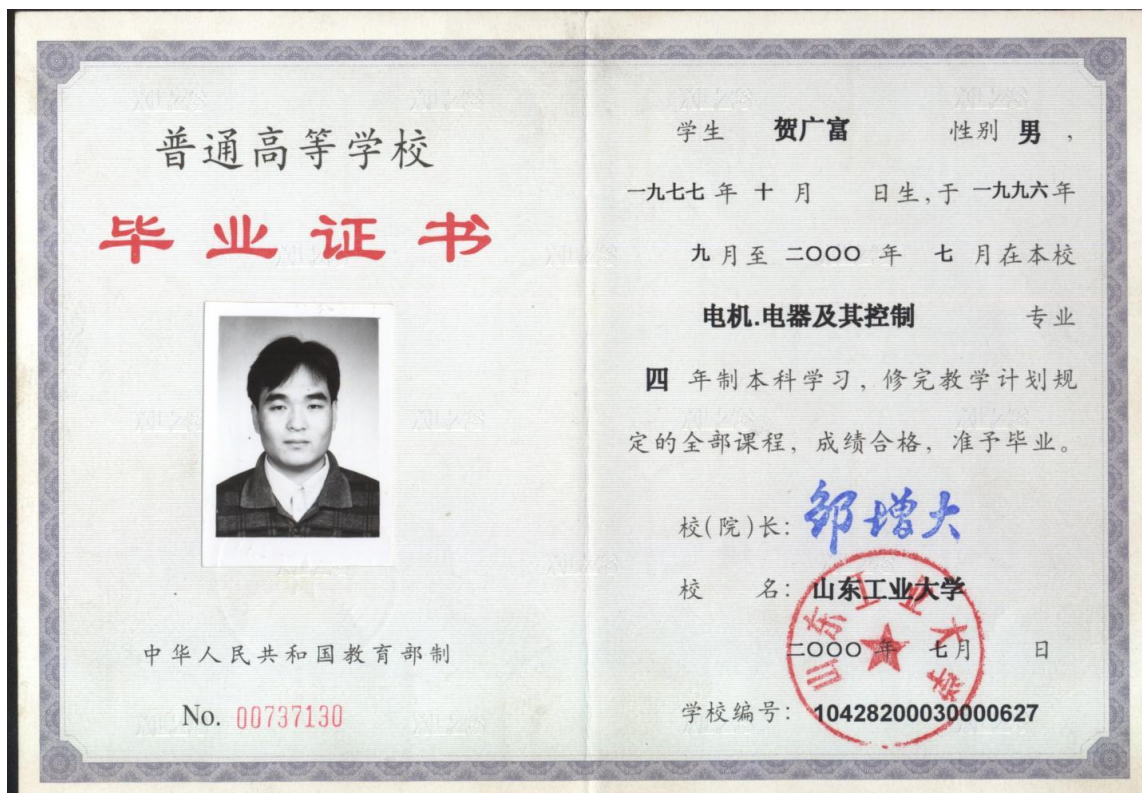 普通高等学校
毕业证书
中华人民共和国教育部制
No. 00737130
学生 贺广富 性别 男，
一九七七 年 十 月 日生，于 一九九六年
九 月至 二〇〇〇 年 七 月在本校
电机.电器及其控制 专业
四 年制本科学习，修完教学计划规
定的全部课程，成绩合格，准予毕业。
校(院)长： 邹增大
校 名： 山东工业大学
二〇〇〇 年 七月 日
学校编号： 10428200030000627
山东工业大学